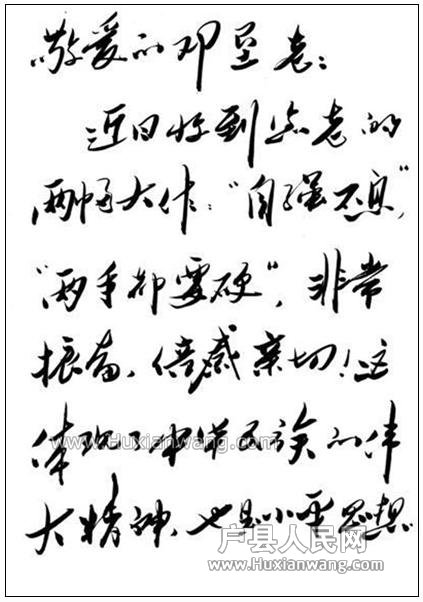 敬爱的邓垦老:
近日收到您老的
两幅大作:“自强不息”,
“两手都要硬”,非常
振奋,倍感亲切!这
体现了中华民族的伟
大精神,也是小平思想
www.Huxianwang.com
户县人民网
www.Huxianwang.com